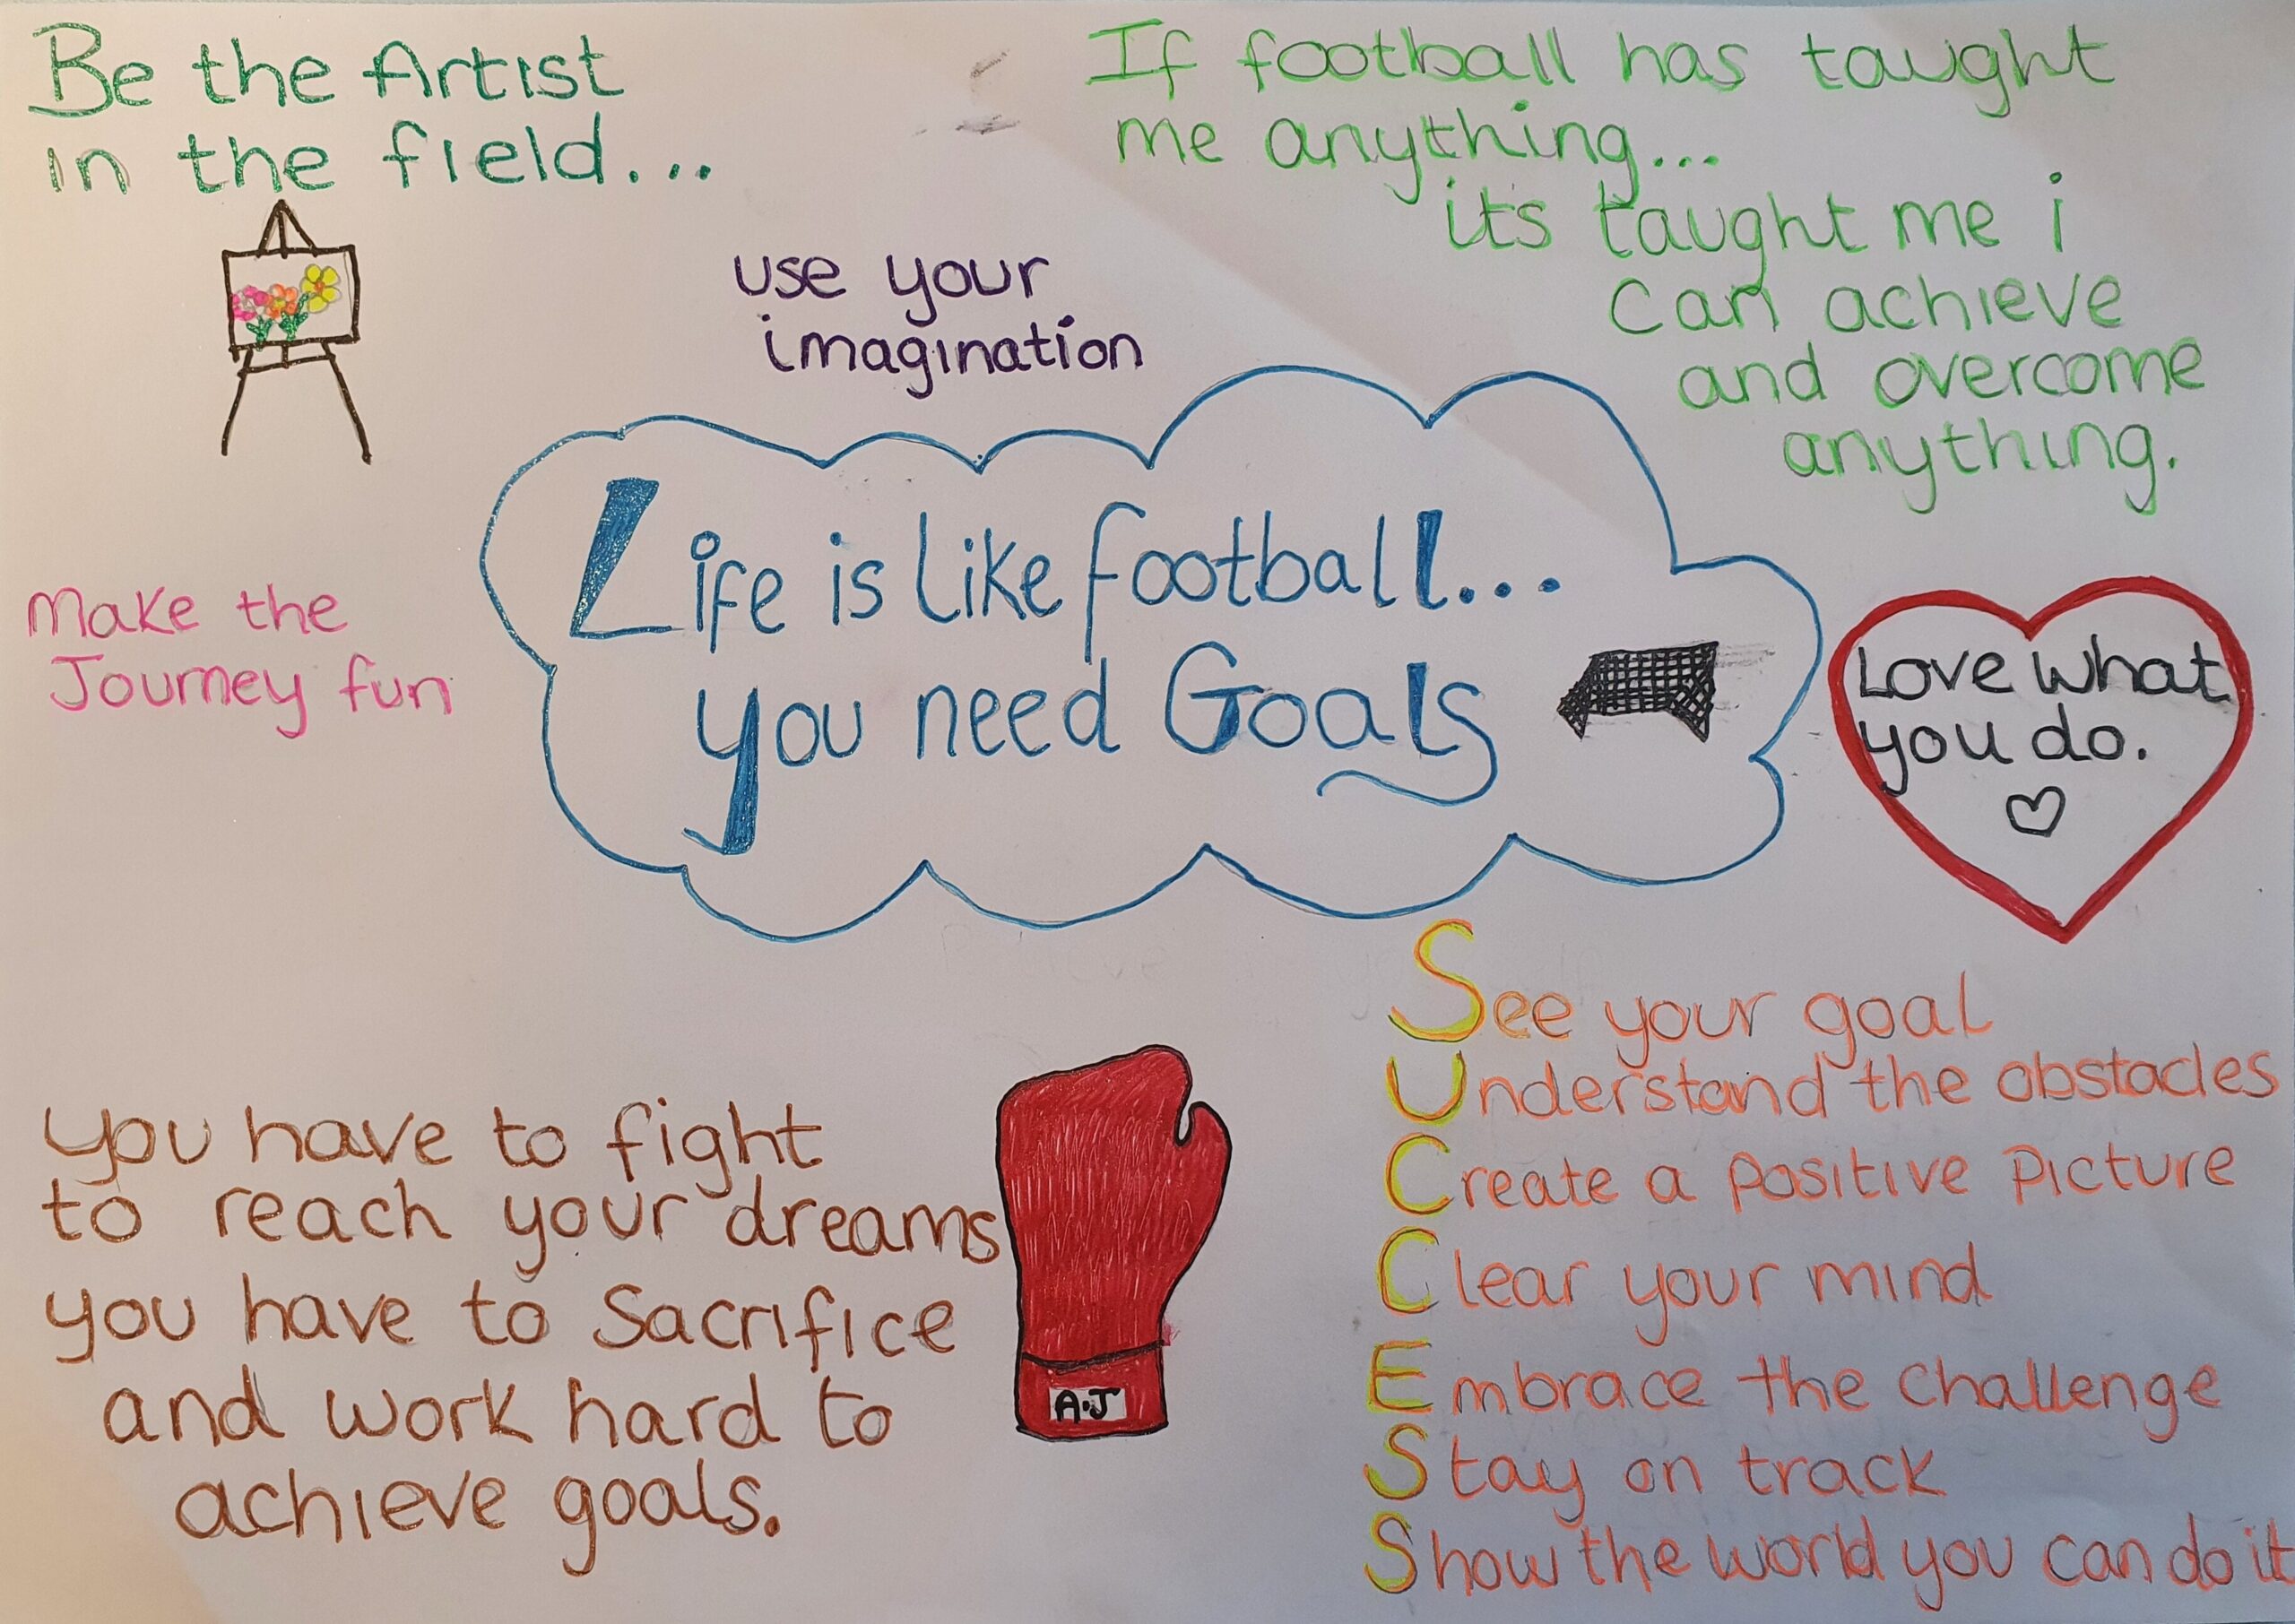 Be the Artist
in the field...
If football has taught
me anything...
its taught me i
can achieve
and overcome
anything.
use your
imagination
Make the
Journey fun
Life is like football...
you need Goals
Love what
you do.
You have to fight
to reach your dreams
you have to Sacrifice
and work hard to
achieve goals.
A.J
See your goal
Understand the obstacles
Create a positive Picture
Clear your mind
Embrace the challenge
Stay on track
Show the world you can do it